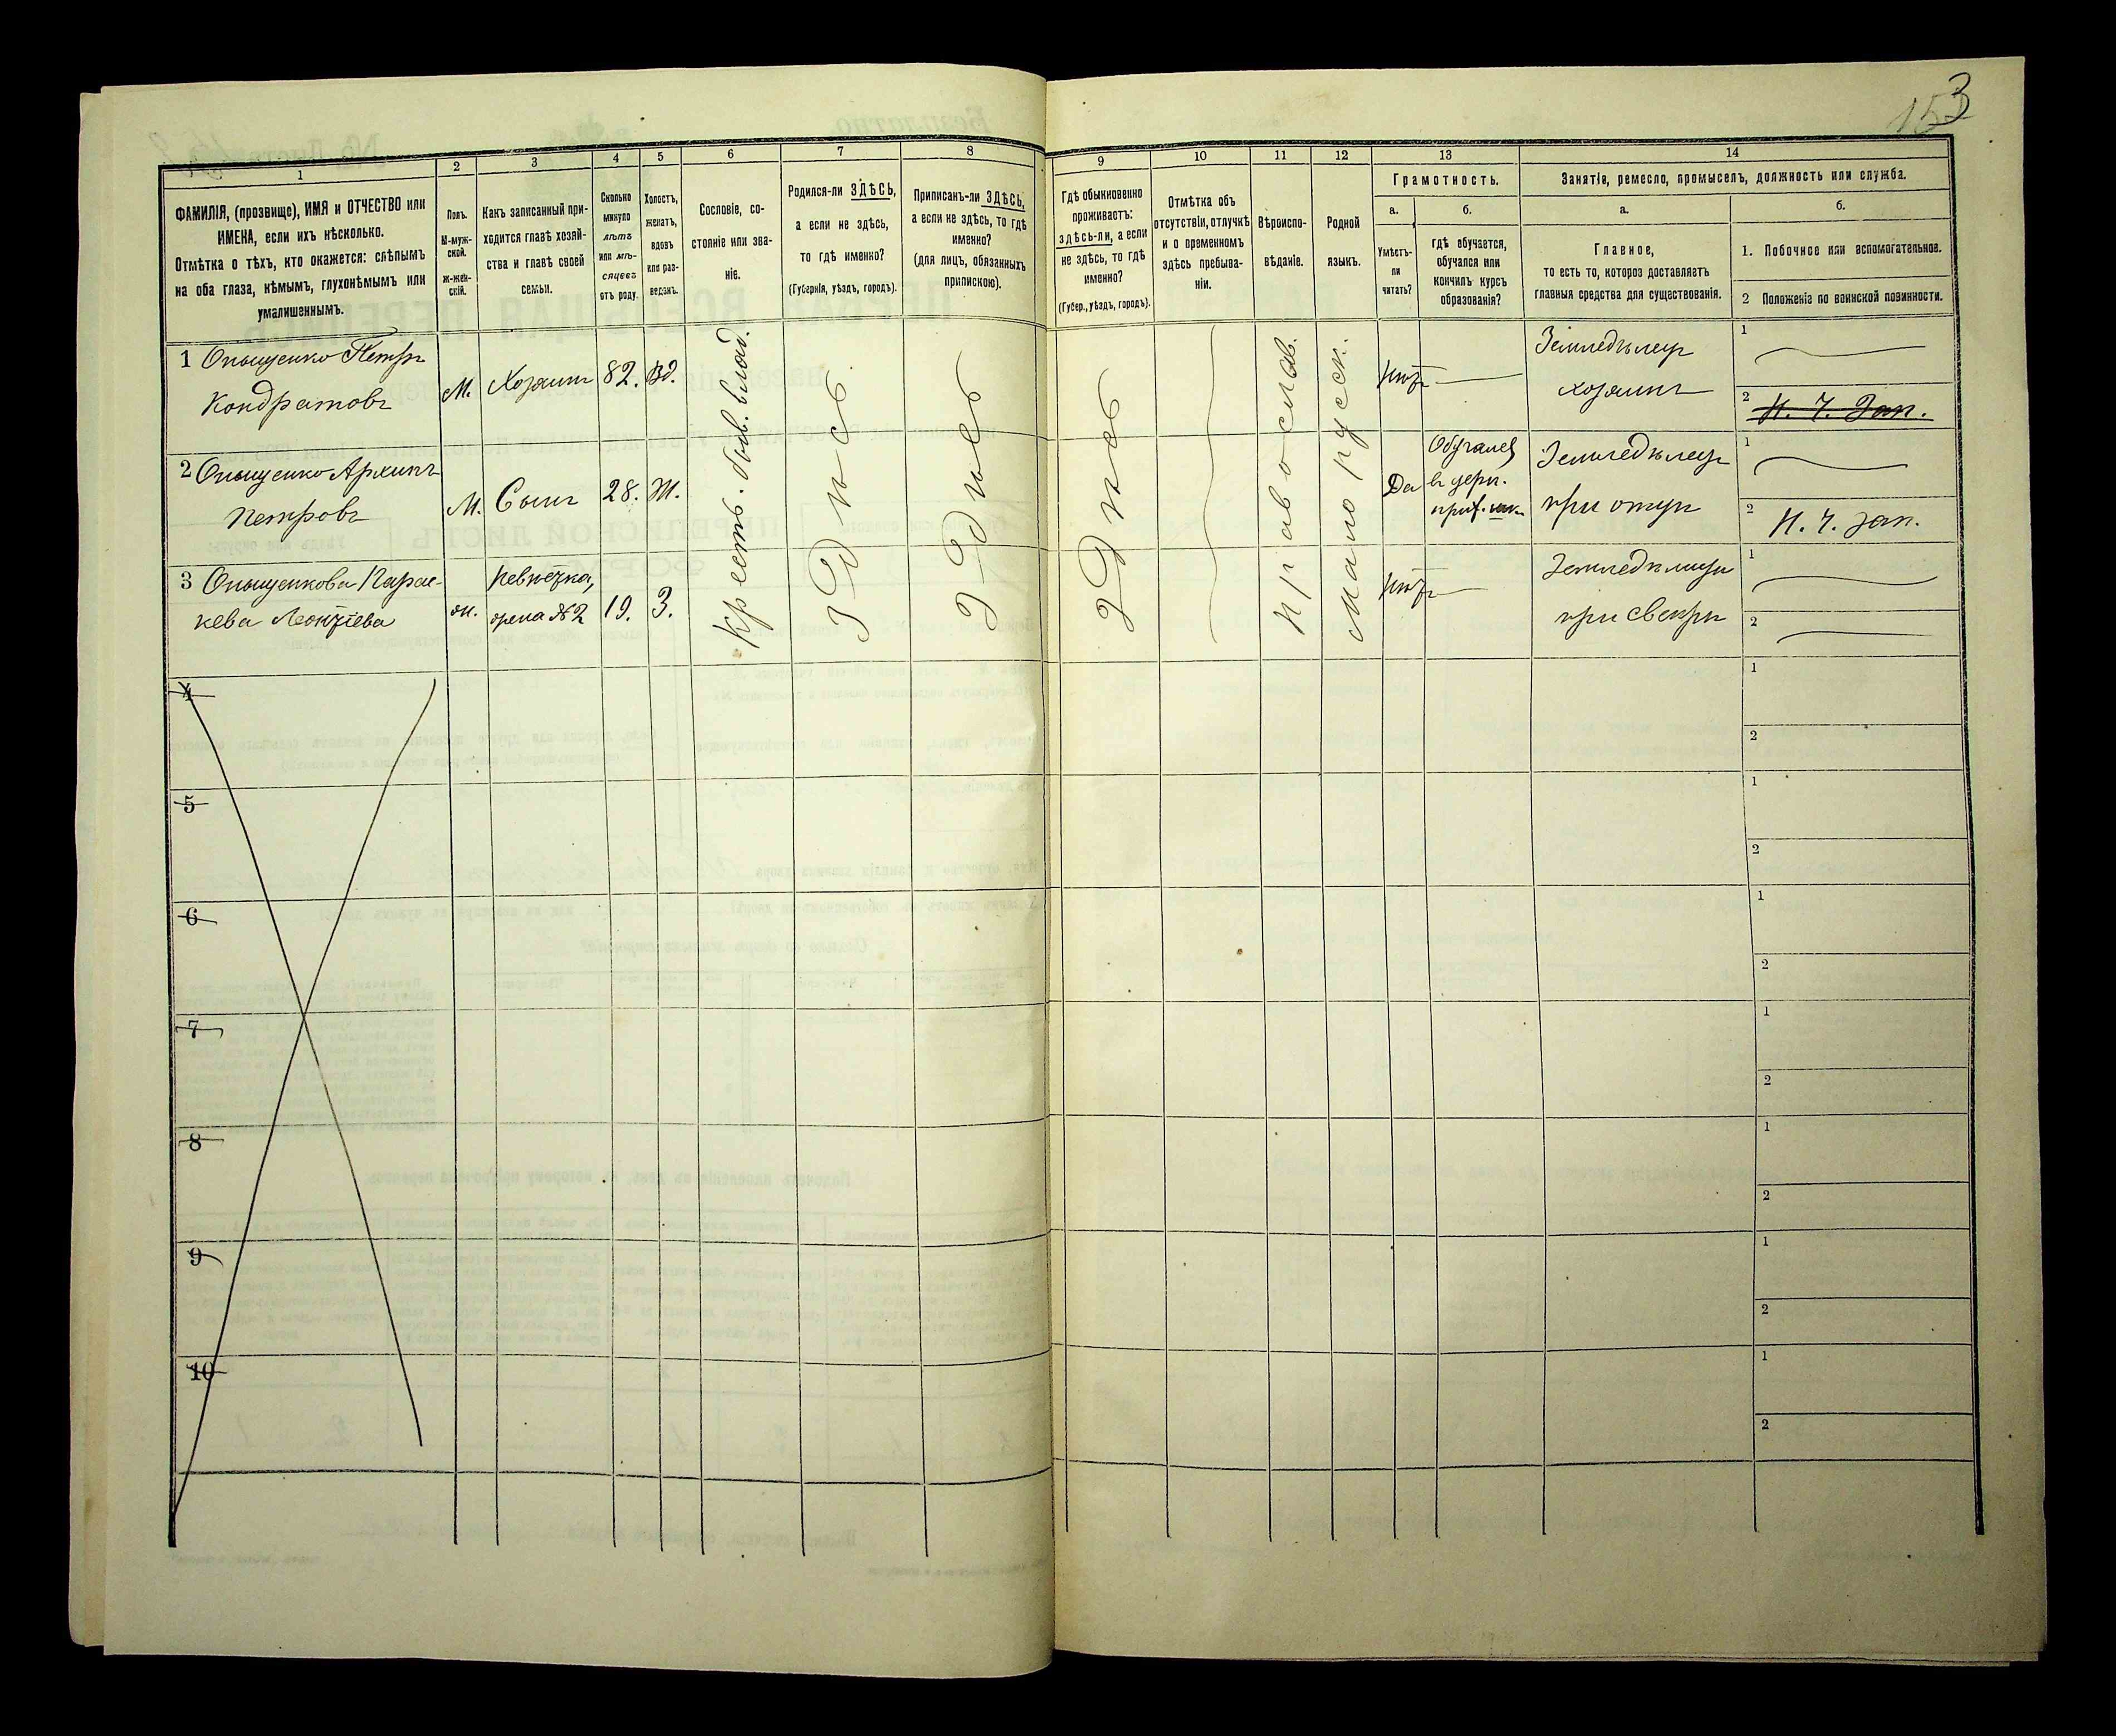 153
1
2
3
4
5
6
7
8
9
10
11
12
13
14
ФАМИЛІЯ, (прозвище), ИМЯ и ОТЧЕСТВО или
ИМЕНА, если ихъ нѣсколько.
Отмѣтка о тѣхъ, кто окажется: слѣпымъ
на оба глаза, нѣмымъ, глухонѣмымъ или
умалишеннымъ.
Полъ.
М-муж-
ской.
Ж-жен-
скій.
Какъ записанный при-
ходится главѣ хозяй-
ства и главѣ своей
семьи.
Сколько
минуло
лѣтъ
или мѣ-
сяцевъ
отъ роду.
Холостъ,
женатъ,
вдовъ
или раз-
веденъ.
Сословіе, со-
стояніе или зва-
ніе.
Родился-ли ЗДѢСЬ,
а если не здѣсь,
то гдѣ именно?
(Губернія, уѣздъ, городъ).
Приписанъ-ли ЗДѢСЬ,
а если не здѣсь, то гдѣ
именно?
(для лицъ, обязанныхъ
припискою).
Гдѣ обыкновенно
проживаетъ:
здѣсь-ли, а если
не здѣсь, то гдѣ
именно?
(Губер., уѣздъ, городъ).
Отмѣтка объ
отсутствіи, отлучкѣ
и о временномъ
здѣсь пребыва-
ніи.
Вѣроиспо-
вѣданіе.
Родной
языкъ.
Грамотность.
а.
б.
Умѣетъ-
ли
читать?
гдѣ обучается,
обучался или
кончилъ курсъ
образованія?
Занятіе, ремесло, промыселъ, должность или служба.
а.
б.
Главное,
то есть то, которое доставляетъ
главныя средства для существованія.
1. Побочное или вспомогательное.
2 Положеніе по воинской повинности.
1 Онищенко Петръ
Кондратовъ
М.
Хозяинъ
82.
Вд.
Кресть. быв. влад.
Здѣсь
Здѣсь
Здѣсь
Православ.
Малорусск.
Нѣтъ
Земледѣлец
хозяинъ
1
2
Н. Ч. Зап.
2 Онищенко Архипъ
Петровъ
М.
Сынъ
28.
Ж.
Да
Обучался
въ церк.
прих. шк.
Земледѣлец
при отцѣ
1
2
Н. Ч. Зап.
3 Онищенкова Парас-
кева Леонтіева
Ж.
Невѣстка,
жена №2
19.
З.
Нѣтъ
при свекрѣ
1
2
4
1
2
5
1
2
6
1
2
7
1
2
8
1
2
9
1
2
10
1
2